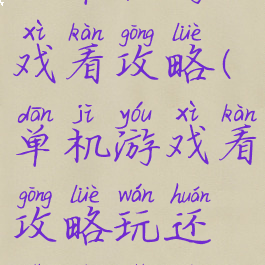 xì kàn gōng lüè
戏看攻略(
dān jī yóu xì kàn
单机游戏看
gōng lüè wán huán
攻略玩还